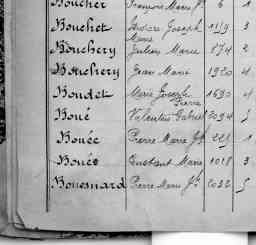 Boucher François Marie J. 6 1
Bouchet Isidore Joseph Marie 1119 3
Bouchery Julien Marie 874 2
Bouchery Jean Marie 1920 4
Boudet Marie Joseph Pierre 1690 4
Boué Valentin Gabriel 2094 5
Bouée Pierre Marie J. 221 1
Bouée Constant Marie 1018 3
Bouesnard Pierre Marie J. 2032 5